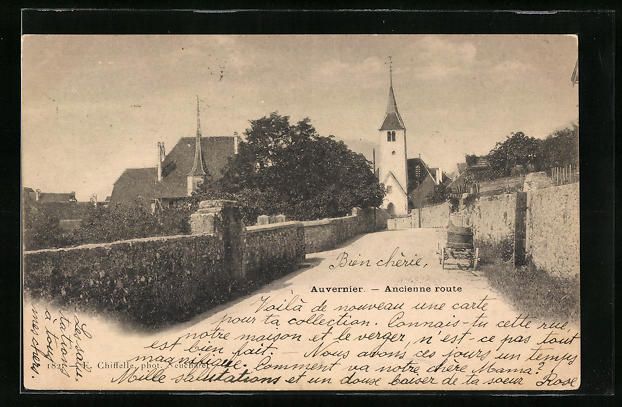 Bien chérie,
Auvernier. - Ancienne route
Voilà de nouveau une carte
pour ta collection. Connais-tu cette rue,
notre maison et le verger, n'est-ce pas tout
est bien fait. Nous avons ces jours un temps
magnifique. Comment va notre chère Mama?
Mille salutations et un doux baiser de ta soeur Rose
Chiffelle, phot. Neuchâtel